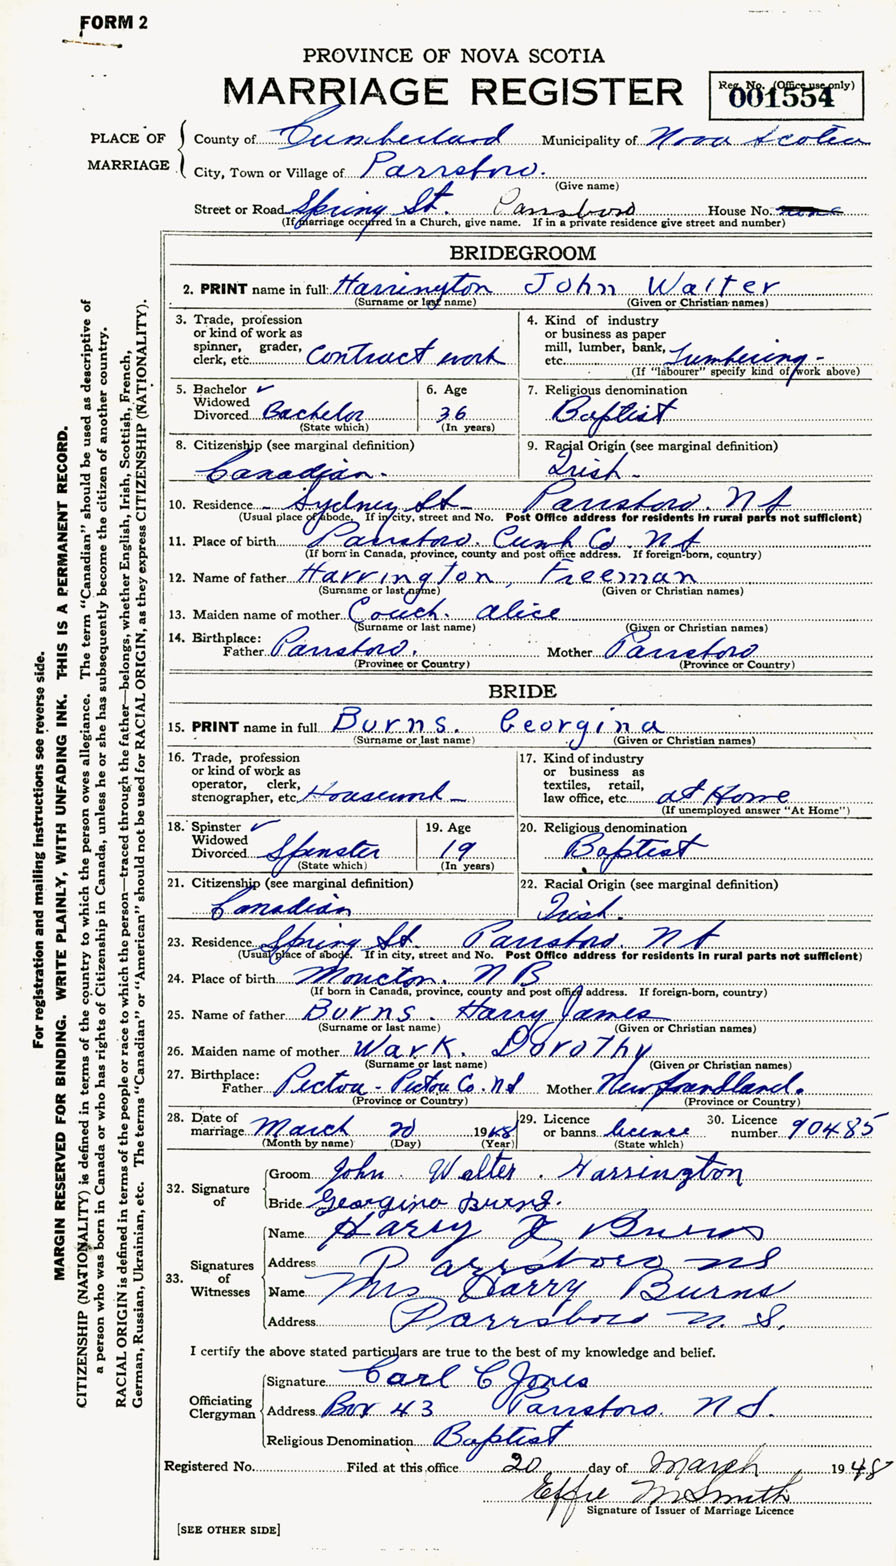 FORM 2
PROVINCE OF NOVA SCOTIA
MARRIAGE REGISTER
Reg. No. (Office use only)
001554
PLACE OF MARRIAGE
County of Cumberland Municipality of Nova Scotia
City, Town or Village of Parrsboro.
(Give name)
Street or Road Spring St. Parrsboro House No. none
(If marriage occurred in a Church, give name. If in a private residence give street and number)
BRIDEGROOM
2. PRINT name in full: Harrington John Walter
(Surname or last name) (Given or Christian names)
3. Trade, profession or kind of work as spinner, grader, clerk, etc. Contract work
4. Kind of industry or business as paper mill, lumber, bank, etc. Lumbering -
(If "labourer" specify kind of work above)
5. Bachelor ✓ Widowed Divorced Bachelor
(State which)
6. Age 36
(In years)
7. Religious denomination
Baptist
8. Citizenship (see marginal definition)
Canadian.
9. Racial Origin (see marginal definition)
Irish.
10. Residence - Sydney St- Parrsboro. N S
(Usual place of abode. If in city, street and No. Post Office address for residents in rural parts not sufficient)
11. Place of birth Parrsboro. Cumb Co. N S
(If born in Canada, province, county and post office address. If foreign-born, country)
12. Name of father Harrington, Freeman
(Surname or last name) (Given or Christian names)
13. Maiden name of mother Couch. Alice
(Surname or last name) (Given or Christian names)
14. Birthplace:
Father Parrsboro. Mother Parrsboro
(Province or Country) (Province or Country)
BRIDE
15. PRINT name in full Burns. Georgina
(Surname or last name) (Given or Christian names)
16. Trade, profession or kind of work as operator, clerk, stenographer, etc. Housework -
17. Kind of industry or business as textiles, retail, law office, etc. at Home
(If unemployed answer "At Home")
18. Spinster ✓ Widowed Divorced Spinster
(State which)
19. Age 19
(In years)
20. Religious denomination
Baptist
21. Citizenship (see marginal definition)
Canadian
22. Racial Origin (see marginal definition)
Irish.
23. Residence Spring St. Parrsboro. N S
(Usual place of abode. If in city, street and No. Post Office address for residents in rural parts not sufficient)
24. Place of birth Moncton. N B
(If born in Canada, province, county and post office address. If foreign-born, country)
25. Name of father Burns. Harry James
(Surname or last name) (Given or Christian names)
26. Maiden name of mother Wark. Dorothy
(Surname or last name) (Given or Christian names)
27. Birthplace:
Father Pictou - Pictou Co. N S Mother Newfoundland.
(Province or Country) (Province or Country)
28. Date of marriage March 20 1948
(Month by name) (Day) (Year)
29. Licence or banns licence
(State which)
30. Licence number 90485
32. Signature of
Groom John Walter. Harrington
Bride Georgina Burns.
33. Signatures of Witnesses
Name Harry J Burns
Address Parrsboro NS
Name Mrs Harry Burns
Address Parrsboro N. S.
I certify the above stated particulars are true to the best of my knowledge and belief.
Officiating Clergyman
Signature Carl C Jones
Address Box 43 Parrsboro. N S.
Religious Denomination Baptist
Registered No. Filed at this office 20 day of March, 1948
Effie M Smith
Signature of Issuer of Marriage Licence
[SEE OTHER SIDE]
For registration and mailing instructions see reverse side.
MARGIN RESERVED FOR BINDING. WRITE PLAINLY, WITH UNFADING INK. THIS IS A PERMANENT RECORD.
CITIZENSHIP (NATIONALITY) is defined in terms of the country to which the person owes allegiance. The term "Canadian" should be used as descriptive of
a person who was born in Canada or who has rights of Citizenship in Canada, unless he or she has subsequently become the citizen of another country.
RACIAL ORIGIN is defined in terms of the people or race to which the person—traced through the father—belongs, whether English, Irish, Scottish, French,
German, Russian, Ukrainian, etc. The terms "Canadian" or "American" should not be used for RACIAL ORIGIN, as they express CITIZENSHIP (NATIONALITY).